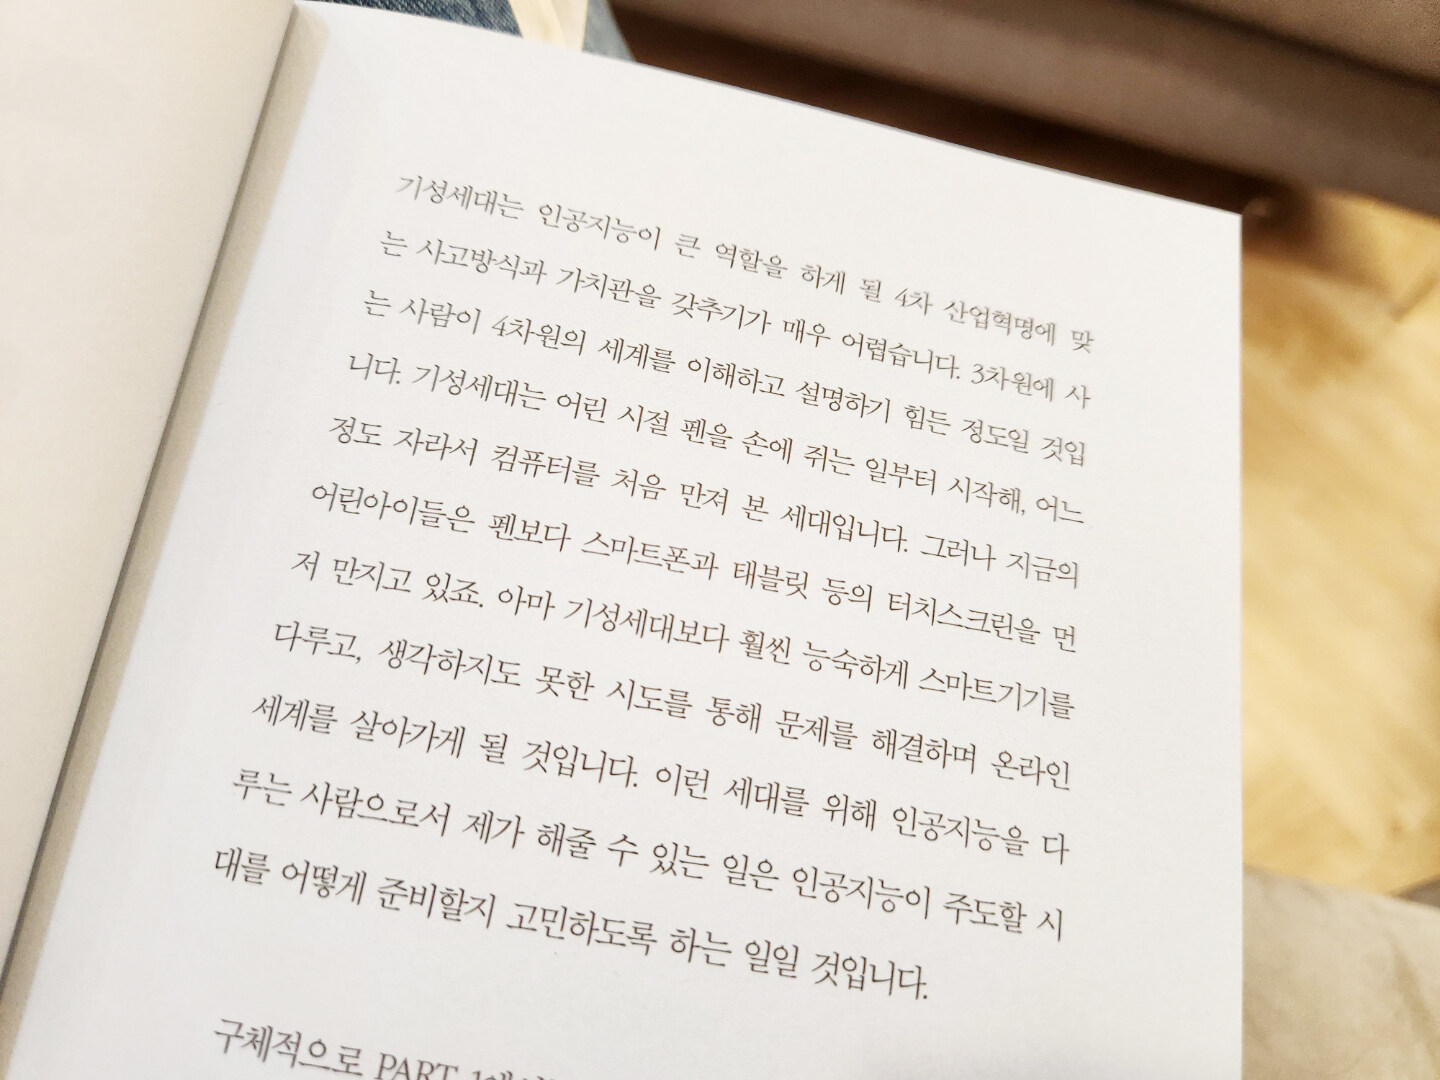 기성세대는 인공지능이 큰 역할을 하게 될 4차 산업혁명에 맞
는 사고방식과 가치관을 갖추기가 매우 어렵습니다. 3차원에 사
는 사람이 4차원의 세계를 이해하고 설명하기 힘든 정도일 것입
니다. 기성세대는 어린 시절 펜을 손에 쥐는 일부터 시작해, 어느
정도 자라서 컴퓨터를 처음 만져 본 세대입니다. 그러나 지금의
어린아이들은 펜보다 스마트폰과 태블릿 등의 터치스크린을 먼
저 만지고 있죠. 아마 기성세대보다 훨씬 능숙하게 스마트기기를
다루고, 생각하지도 못한 시도를 통해 문제를 해결하며 온라인
세계를 살아가게 될 것입니다. 이런 세대를 위해 인공지능을 다
루는 사람으로서 제가 해줄 수 있는 일은 인공지능이 주도할 시
대를 어떻게 준비할지 고민하도록 하는 일일 것입니다.
구체적으로 PART 1에서